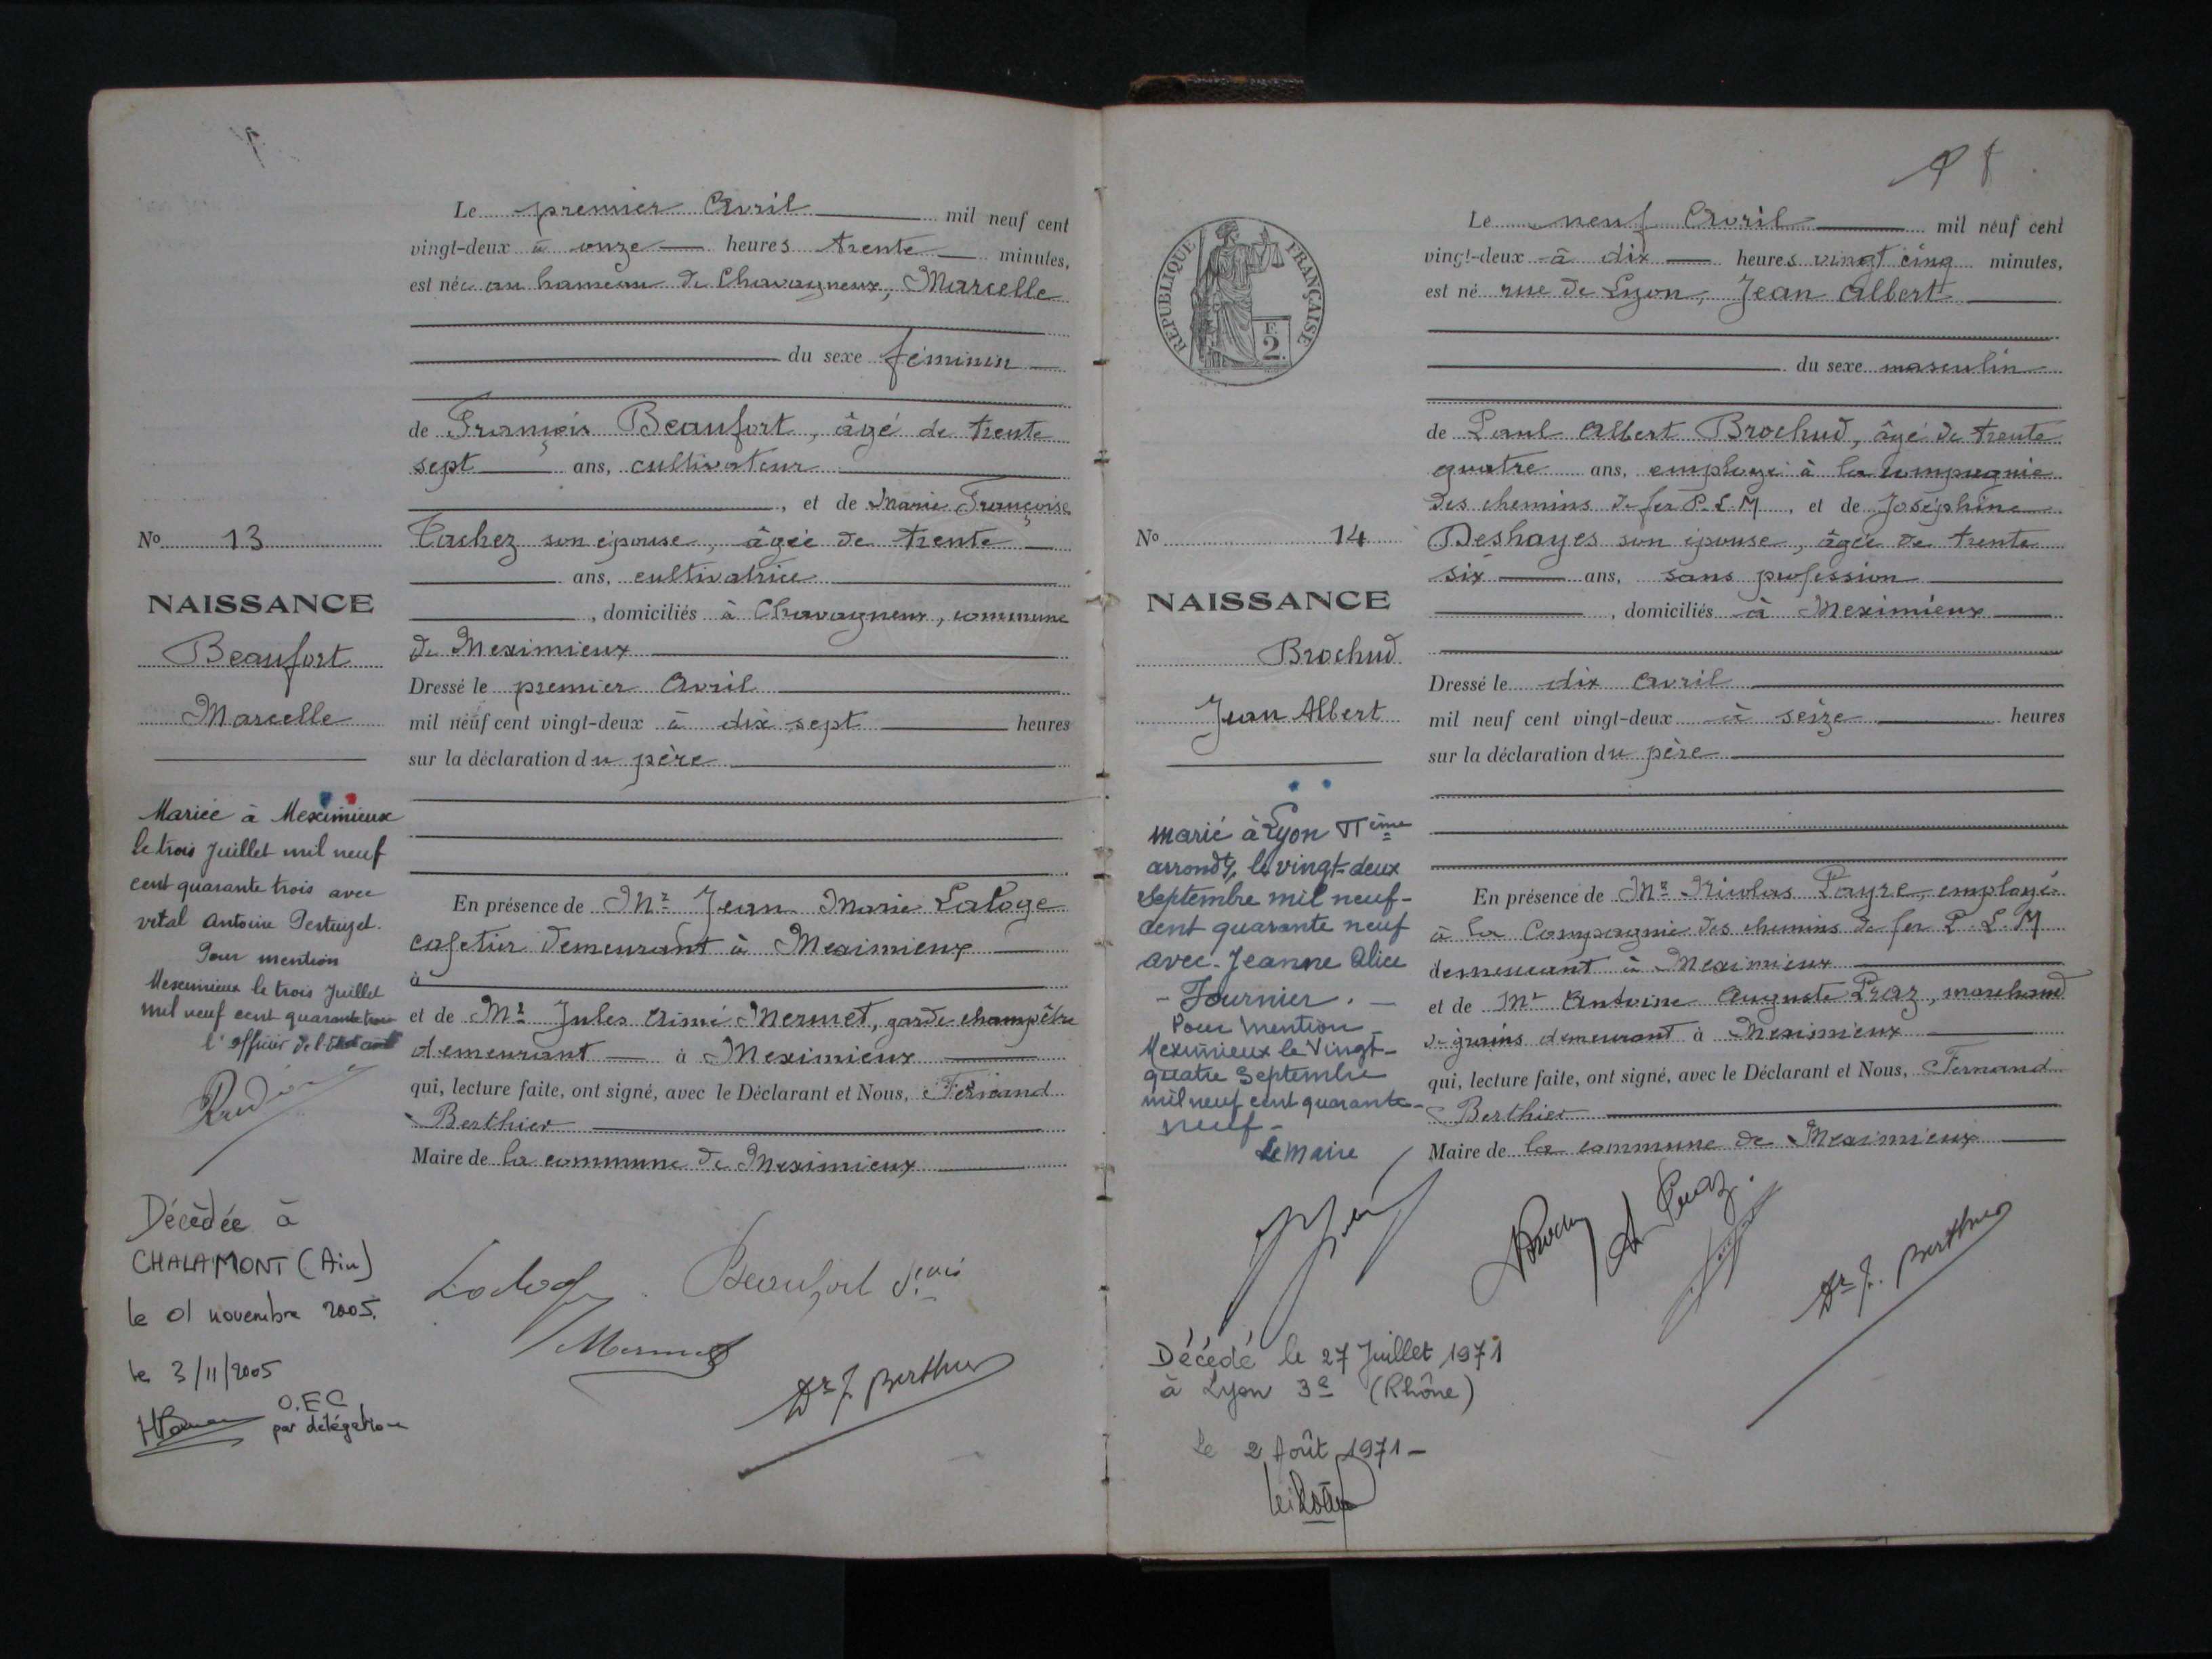 Le premier Avril mil neuf cent
vingt-deux à onze heures trente minutes,
est née au hameau de Chavagneux, Marcelle
du sexe féminin
de François Beaufort, âgé de trente
sept ans, cultivateur
, et de Marie Françoise
Tachez son épouse, âgée de trente
ans, cultivatrice
, domiciliés à Chavagneux, commune
de Meximieux
Dressé le premier Avril
mil neuf cent vingt-deux à dix sept heures
sur la déclaration du père
En présence de Mr Jean Marie Laloge
cafetier demeurant à Meximieux
à
et de Mr Jules Aimé Mermet, garde champêtre
demeurant à Meximieux
qui, lecture faite, ont signé, avec le Déclarant et Nous, Fernand
Berthier
Maire de la commune de Meximieux
Beaufort
Mermet
Dr F. Berthier
No 13
NAISSANCE
Beaufort
Marcelle
Mariée à Meximieux
le trois Juillet mil neuf
cent quarante trois avec
vital Antoine
Pour mention
Meximieux le trois Juillet
mil neuf cent quarante trois
l'officier de l'Etat civil
Décédée à
CHALAMONT (Ain)
le 01 novembre 2005.
le 3/11/2005
O.E.C
par délégation
REPUBLIQUE FRANÇAISE
F.
2.
No 14
NAISSANCE
Brochud
Jean Albert
marié à Lyon
arrondt, le vingt-deux
Septembre mil neuf-
cent quarante neuf
avec Jeanne Alice
- Fournier. -
Pour mention
Meximieux le Vingt-
quatre Septembre
mil neuf cent quarante-
neuf-
le Maire
Décédé le 27 Juillet 1971
à Lyon 3e (Rhône)
le 2 Août 1971-
Le neuf Avril mil neuf cent
vingt-deux à dix heures vingt cinq minutes,
est né rue de Lyon, Jean Albert
du sexe masculin
de Paul Albert Brochud, âgé de trente
quatre ans, employé à la compagnie
des chemins de fer P. L. M, et de Joséphine
Deshayes son épouse, âgée de trente
six ans, sans profession
, domiciliés à Meximieux
Dressé le dix Avril
mil neuf cent vingt-deux à seize heures
sur la déclaration du père
En présence de Mr Nicolas Payre, employé
à la Compagnie des chemins de fer P. L. M
demeurant à Meximieux
et de Mr Antoine Auguste Praz, marchand
de grains demeurant à Meximieux
qui, lecture faite, ont signé, avec le Déclarant et Nous, Fernand
Berthier
Maire de la commune de Meximieux
A Praz.
Dr F. Berthier